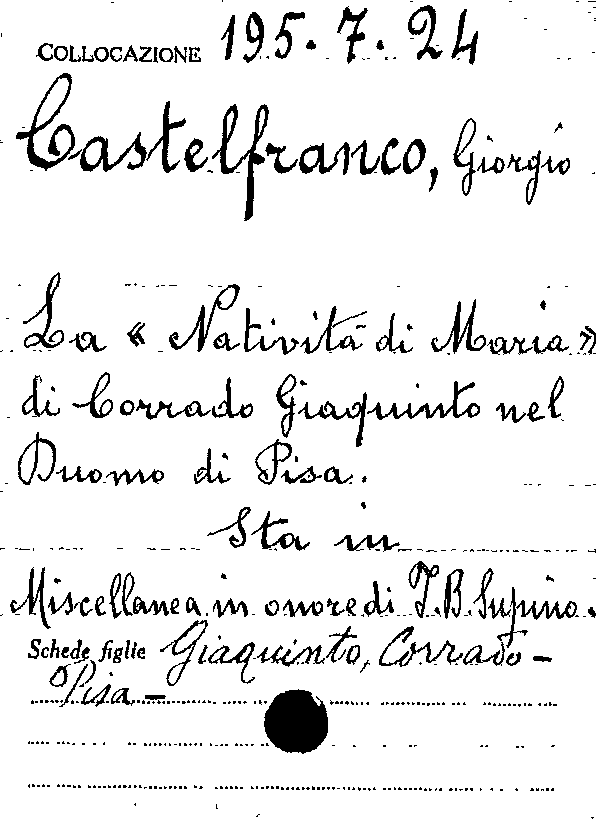 COLLOCAZIONE 195.7.24
Castelfranco, Giorgio
La « Natività di Maria »
di Corrado Giaquinto nel
Duomo di Pisa.
Sta in
Miscellanea in onore di I. B. Supino.
Schede figlie Giaquinto, Corrado -
Pisa -